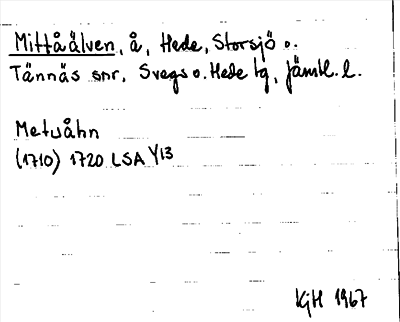 Mittåälven, å, Hede, Storsjö o.
Tännäs snr, Svegs o. Hede tg, Jämtl. l.
Metwåhn
(1710) 1720 LSA Y13
KjH 1967